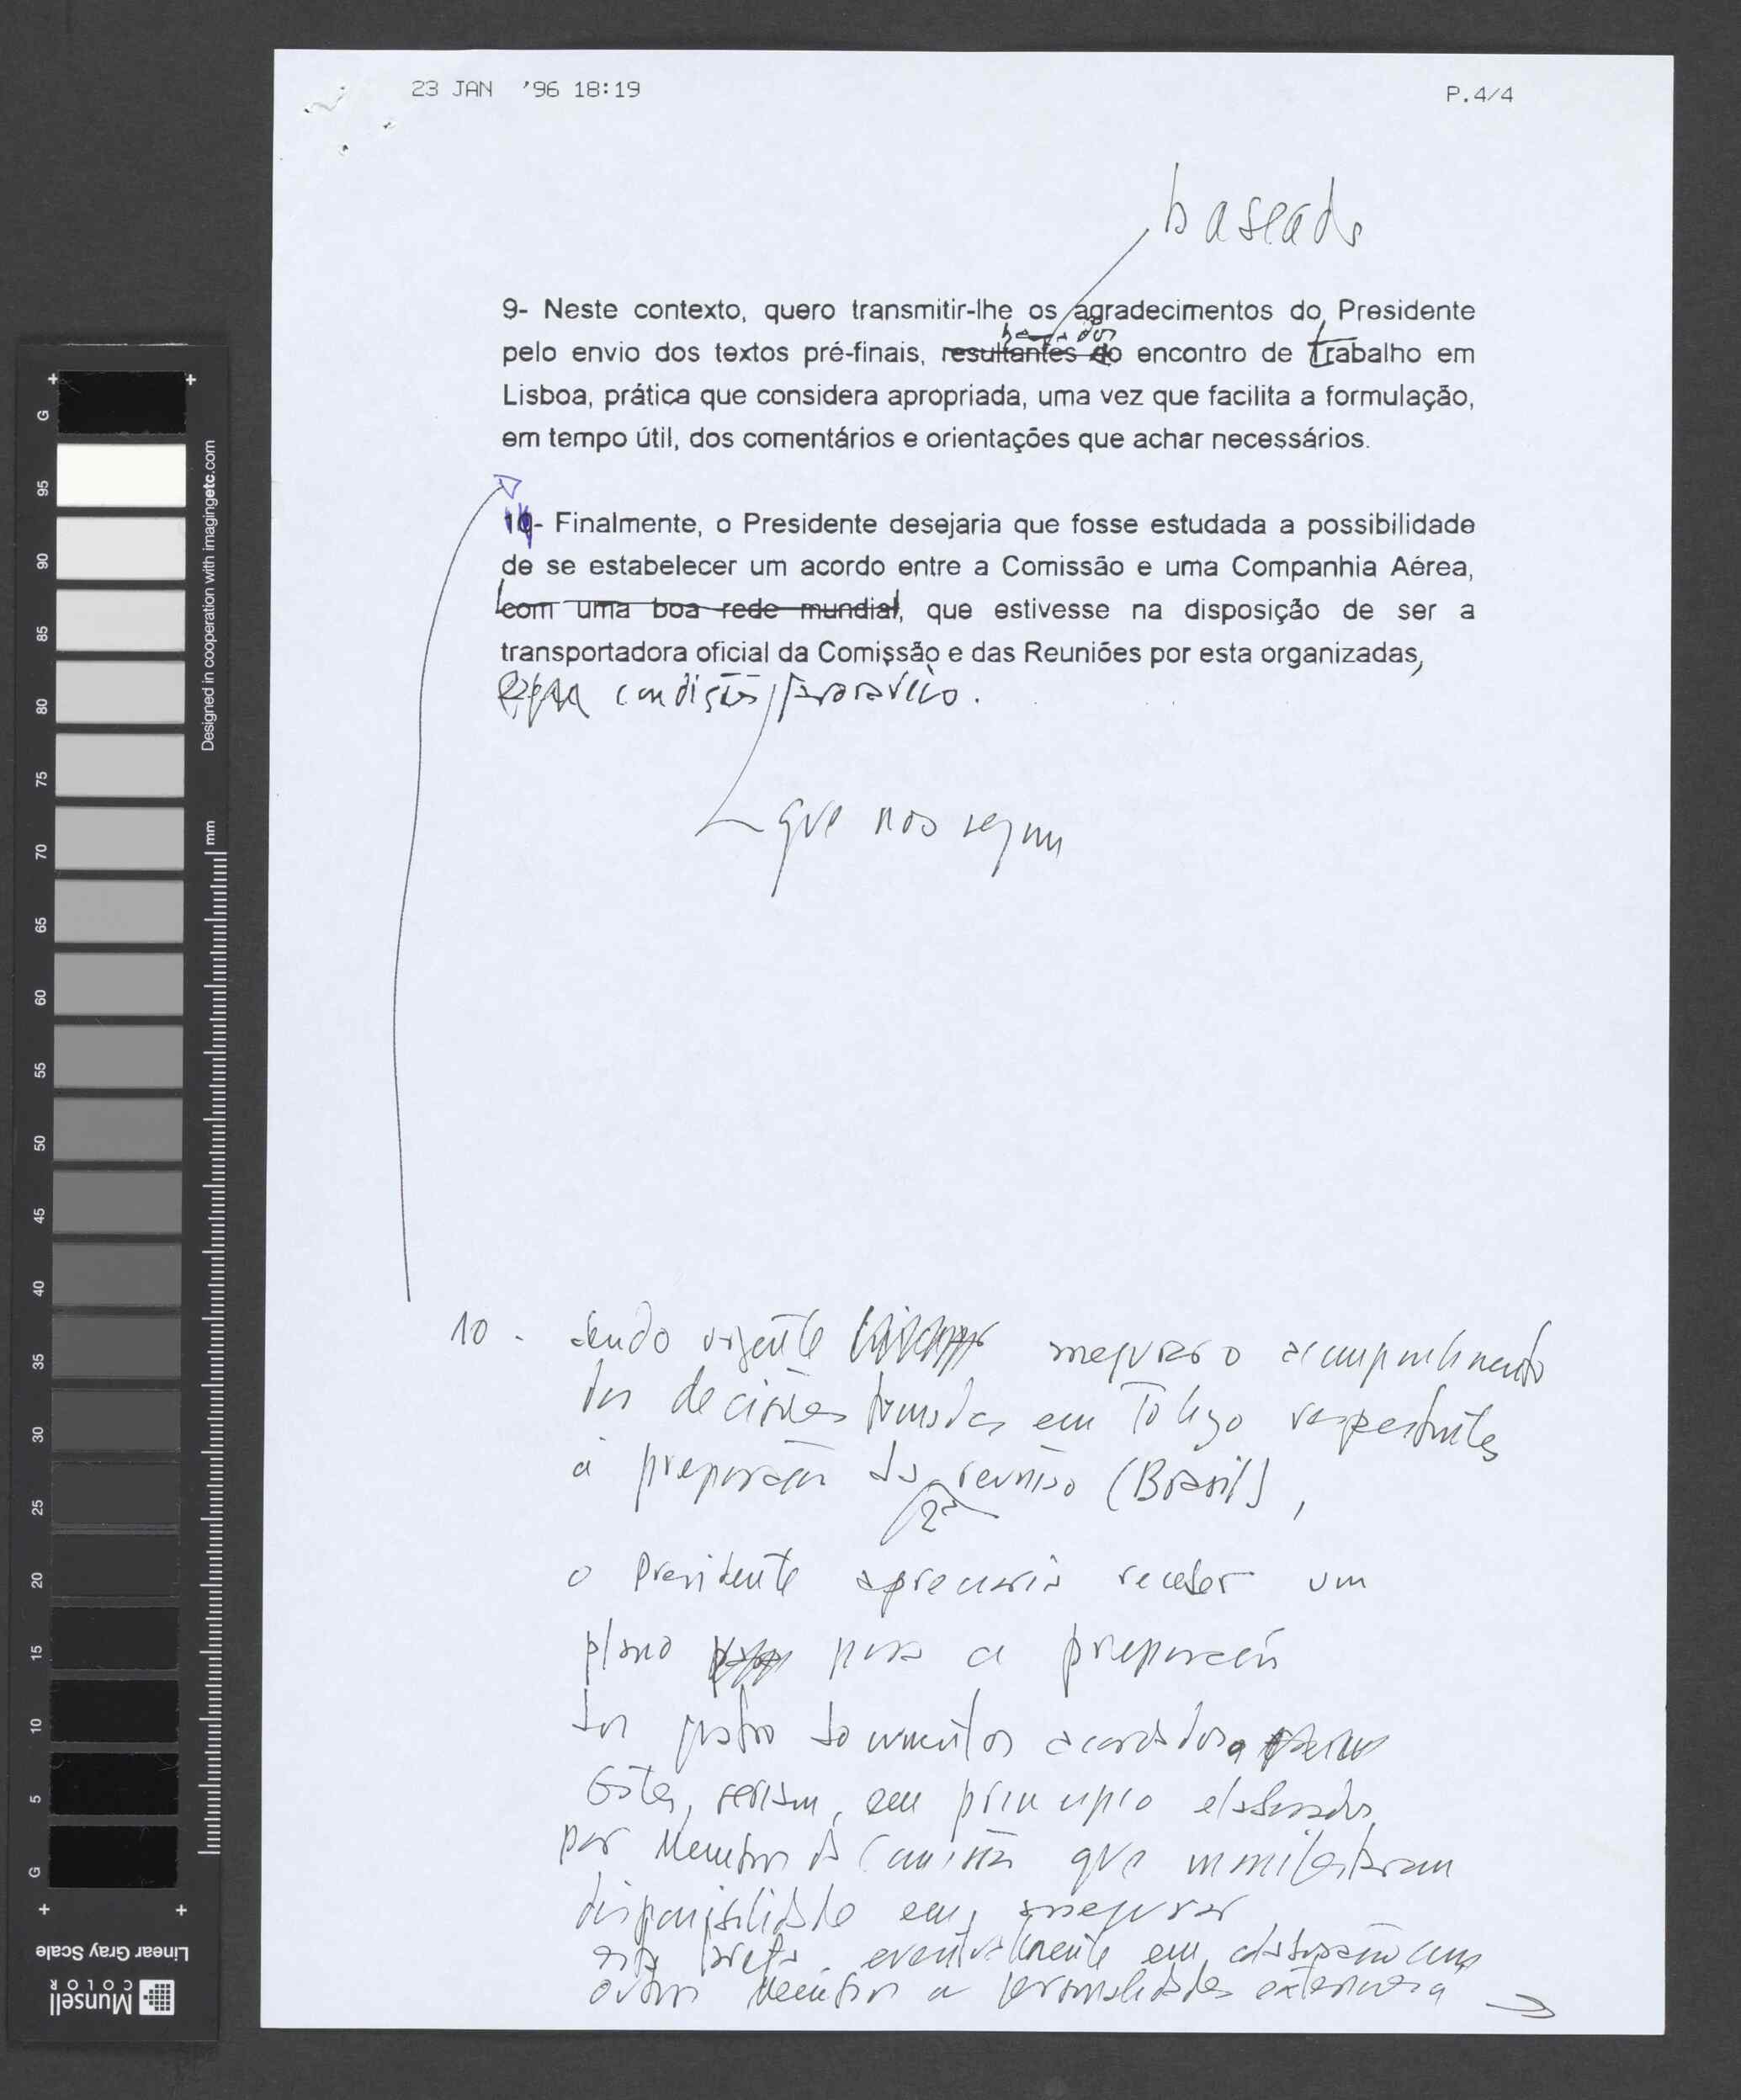 23 JAN '96 18:19
P.4/4
baseado
9- Neste contexto, quero transmitir-lhe os agradecimentos do Presidente
baseados
pelo envio dos textos pré-finais, resultantes do encontro de trabalho em
Lisboa, prática que considera apropriada, uma vez que facilita a formulação,
em tempo útil, dos comentários e orientações que achar necessários.
10- Finalmente, o Presidente desejaria que fosse estudada a possibilidade
de se estabelecer um acordo entre a Comissão e uma Companhia Aérea,
com uma boa rede mundial, que estivesse na disposição de ser a
transportadora oficial da Comissão e das Reuniões por esta organizadas,
condições favoráveis.
que nos sejam
10 - Sendo urgente assegurar o acompanhamento
das decisões tomadas em Tokyo respeitantes
à preparação da reunião (Brasil),
2ª
o Presidente apreciaria receber um
plano para a preparação
dos quatro documentos acordados.
Estes, seriam, em princípio elaborados
por Membros da Comissão que manifestaram
disponibilidade em, assegurar
esta tarefa, eventualmente em colaboração com
outros membros e personalidades externas a
G
95
90
85
80
75
70
65
60
55
50
45
40
35
30
25
20
15
10
5
G
mm
Designed in cooperation with imagingetc.com
Linear Gray Scale
Munsell
COLOR